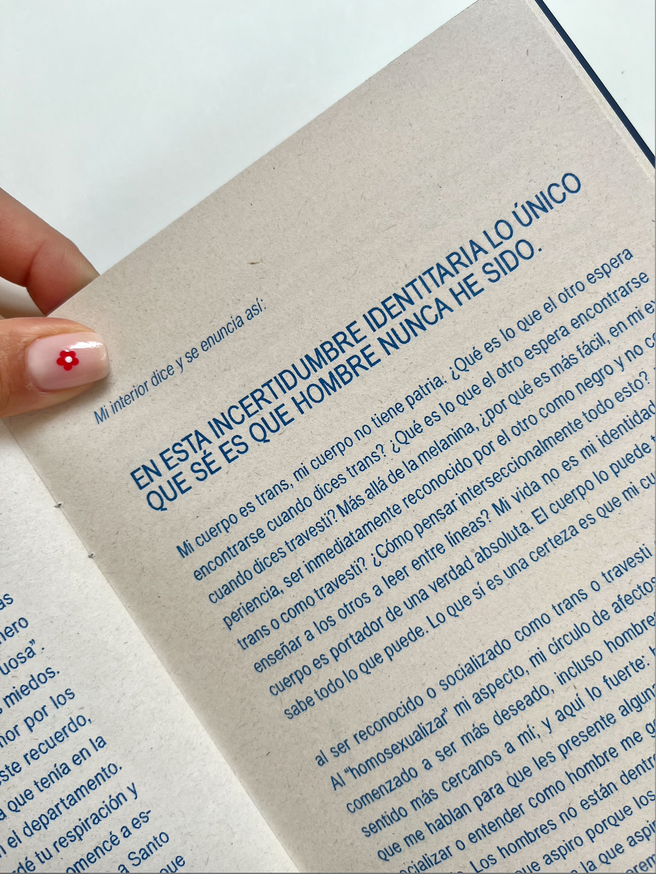 as
nero
uosa".
miedos.
nor por los
ste recuerdo,
a que tenía en la
n el departamento.
rdé tu respiración y
omencé a es-
a Santo
que
Mi interior dice y se enuncia así:
EN ESTA INCERTIDUMBRE IDENTITARIA LO ÚNICO
QUE SÉ ES QUE HOMBRE NUNCA HE SIDO.
Mi cuerpo es trans, mi cuerpo no tiene patria. ¿Qué es lo que el otro espera
encontrarse cuando dices trans? ¿Qué es lo que el otro espera encontrarse
cuando dices travesti? Más allá de la melanina, ¿por qué es más fácil, en mi ex
periencia, ser inmediatamente reconocido por el otro como negro y no co
trans o como travesti? ¿Cómo pensar interseccionalmente todo esto?
enseñar a los otros a leer entre líneas? Mi vida no es mi identidad
cuerpo es portador de una verdad absoluta. El cuerpo lo puede t
sabe todo lo que puede. Lo que sí es una certeza es que mi cu
al ser reconocido o socializado como trans o travesti
Al "homosexualizar" mi aspecto, mi círculo de afectos
comenzado a ser más deseado, incluso hombre
sentido más cercanos a mí; y aquí lo fuerte: h
que me hablan para que les presente algun
ocializar o entender como hombre me g
Los hombres no están dentr
que aspiro porque los
a la que aspir
arem